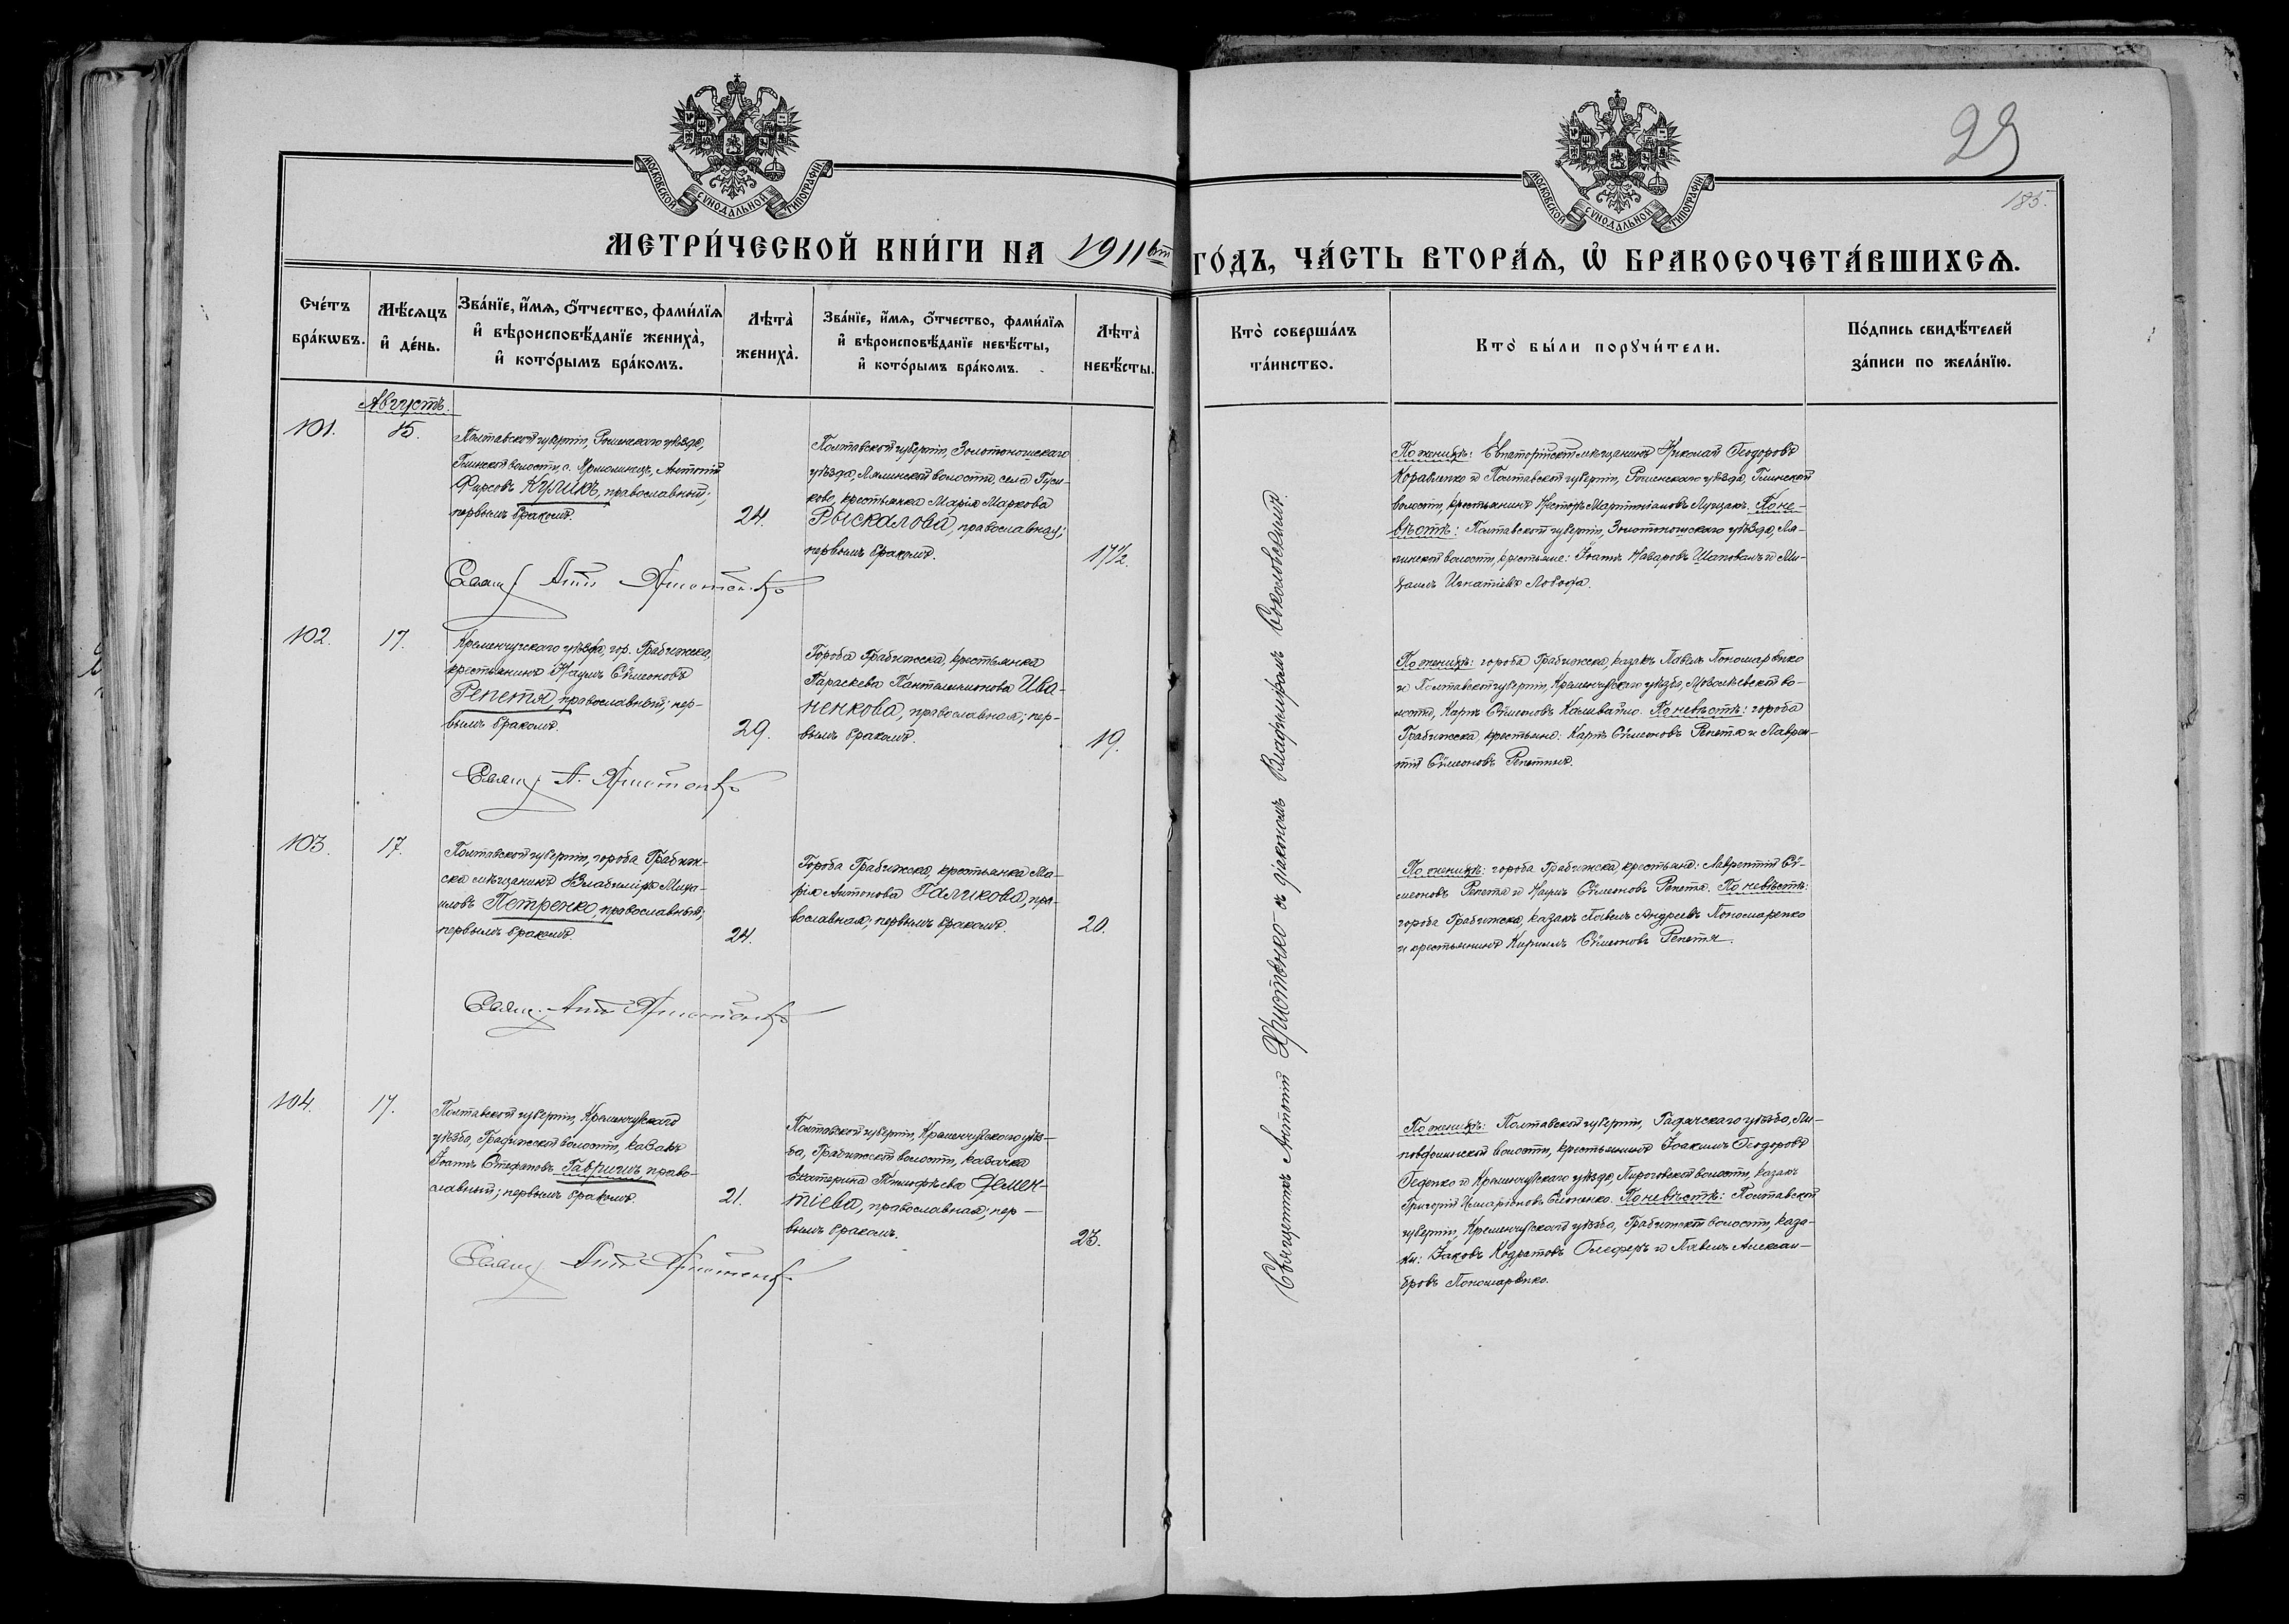 МОСКОВСКОЙ СѴНОДАЛЬНОЙ ТИПОГРАФІИ
МОСКОВСКОЙ СѴНОДАЛЬНОЙ ТИПОГРАФІИ
29
185.
МЕТРИ́ЧЕСКОЙ КНИ́ГИ НА 1911 ГО́ДЪ, ЧА́СТЬ ВТОРА́Ѧ, Ѡ БРАКОСОЧЕТА́ВШИХСѦ.
Сче́тъ бра́кѡвъ.
Мѣ́сѧцъ и де́нь.
Зва́нїе, и́мѧ, ѻ́тчество, фами́лїѧ
и вѣроисповѣ́данїе жениха̀,
и кото́рымъ бра́комъ.
Лѣта̀ жениха̀.
Зва́нїе, и́мѧ, ѻ́тчество, фами́лїѧ
и вѣроисповѣ́данїе невѣ́сты,
и кото́рымъ бра́комъ.
Лѣта̀ невѣ́сты.
Кто̀ соверша́лъ
та́инство.
Кто̀ бы́ли порꙋчи́тели.
По́дпись свидѣ́телей
за́писи по жела́нїю.
Августъ.
101.
15.
Полтавской губерніи, Роменскаго уѣзда,
Глинской волости, с. Ярмолинецъ, Антоній
Фирсовъ Куликъ, православный;
первымъ бракомъ.
24.
Полтавской губерніи, Золотоношскаго
уѣзда, Лялинской волости, села Гуси-
ково, крестьянка Марія Маркова
Рыскалова, православная;
первымъ бракомъ.
17½.
По женихѣ: Евпаторійскій мѣщанинъ Николай Ѳеодоровъ
Коравленко и Полтавской губерніи, Роменскаго уѣзда, Глинской
волости, крестьянинъ Несторъ Мартиніановъ Луцакъ. По не-
вѣстѣ: Полтавской губерніи, Золотоношскаго уѣзда, Ля-
линской волости, крестьяне: Іоаннъ Назаровъ Шаповалъ и Ми-
хаилъ Игнатіевъ Лобода.
Свящ. Ант Христенко
102.
17.
Кременчугскаго уѣзда, гор. Градижска,
крестьянинъ Наумъ Сѵмеоновъ
Репетя, православный; пер-
вымъ бракомъ.
29.
Города Градижска, крестьянка
Параскева Пантелимонова Ива-
ненкова, православная; пер-
вымъ бракомъ.
19.
По женихѣ: города Градижска, казакъ Павелъ Пономаренко
и Полтавской губерніи, Кременчугскаго уѣзда, во-
лости, Карпъ Сѵмеоновъ Каливайло. По невѣстѣ: города
Градижска, крестьяне: Карпъ Сѵмеоновъ Репетя и Лаврен-
тій Сѵмеоновъ Репетя.
Свящ. А. Христенко
103.
17.
Полтавской губерніи, города Градиж-
ска мѣщанинъ Владиміръ Миха-
иловъ Петренко, православный;
первымъ бракомъ.
24.
Города Градижска, крестьянка Ма-
рія Антонова Галикова, пра-
вославная; первымъ бракомъ.
20.
По женихѣ: города Градижска, крестьяне: Лаврентій Сѵ-
меоновъ Репетя и Наумъ Сѵмеоновъ Репетя. По невѣстѣ:
города Градижска, казакъ Павелъ Андреевъ Пономаренко
и крестьянинъ Кириллъ Сѵмеоновъ Репетя.
Свящ. Ант Христенко
104.
17.
Полтавской губерніи, Кременчугскаго
уѣзда, Градижской волости, казакъ
Іоаннъ Стефановъ Гавришъ, право-
славный; первымъ бракомъ.
21.
Полтавской губерніи, Кременчугскаго уѣз-
да, Градижской волости, казачка
Екатерина Тимофѣева Демен-
тіева, православная; пер-
вымъ бракомъ.
23.
По женихѣ: Полтавской губерніи, Гадячскаго уѣзда, Ли-
повдолинской волости, крестьянинъ Іоакимъ Ѳеодоровъ
Геденко и Кременчугскаго уѣзда, Пироговской волости, казакъ
Григорій Иларіоновъ. По невѣстѣ: Полтавской
губерніи, Кременчугскаго уѣзда, Градижской волости, каза-
ки: Іаковъ Кодратовъ и Павелъ Алексан-
дровъ Пономаренко.
Свящ. Ант Христенко
Священникъ Антоній Христенко съ діакономъ Владиміромъ Соколовскимъ.